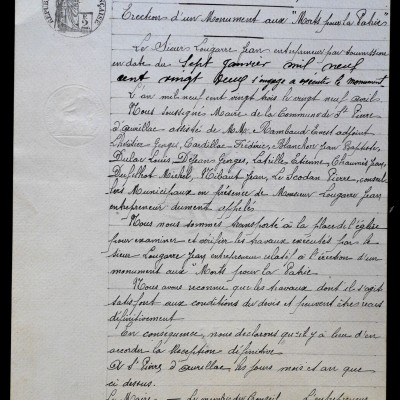 Erection d'un Monument aux "Morts pour la Patrie"
Le Sieur Lougarre Jean entrepreneur par soumission
en date du sept janvier mil neuf
cent vingt deux s'engage à exécuter le monument
L'an mil neuf cent vingt trois le vingt neuf avril
Nous soussignés Maire de la Commune de St Pierre
d'Aurillac assisté de M.M. Rambaud Ernest adjoint
Georges, Cardillac Frédéric, Blanchon Jean Baptiste,
Dulau Louis, Dejean Georges, Latrille Etienne, Chaumis Jean,
Michel, Jean, Lescodan Pierre, conseil
lers Municipaux en présence de Monsieur Lougarre Jean
entrepreneur dûment appelé
Nous nous sommes transporté à la place de l'église
pour examiner et vérifier les travaux exécutés par le
sieur Lougarre Jean entrepreneur relatif à l'érection d'un
monument aux "Morts pour la Patrie
Nous avons reconnu que les travaux dont il s'agit
satisfont aux conditions du devis et peuvent être reçus
définitivement
En conséquence, nous déclarons qu'il y a lieu d'en
accorder la Réception définitive
A St Pierre d'Aurillac les jours mois et an que
ci dessus.
Le Maire — Les membres du Conseil — L'entrepreneur